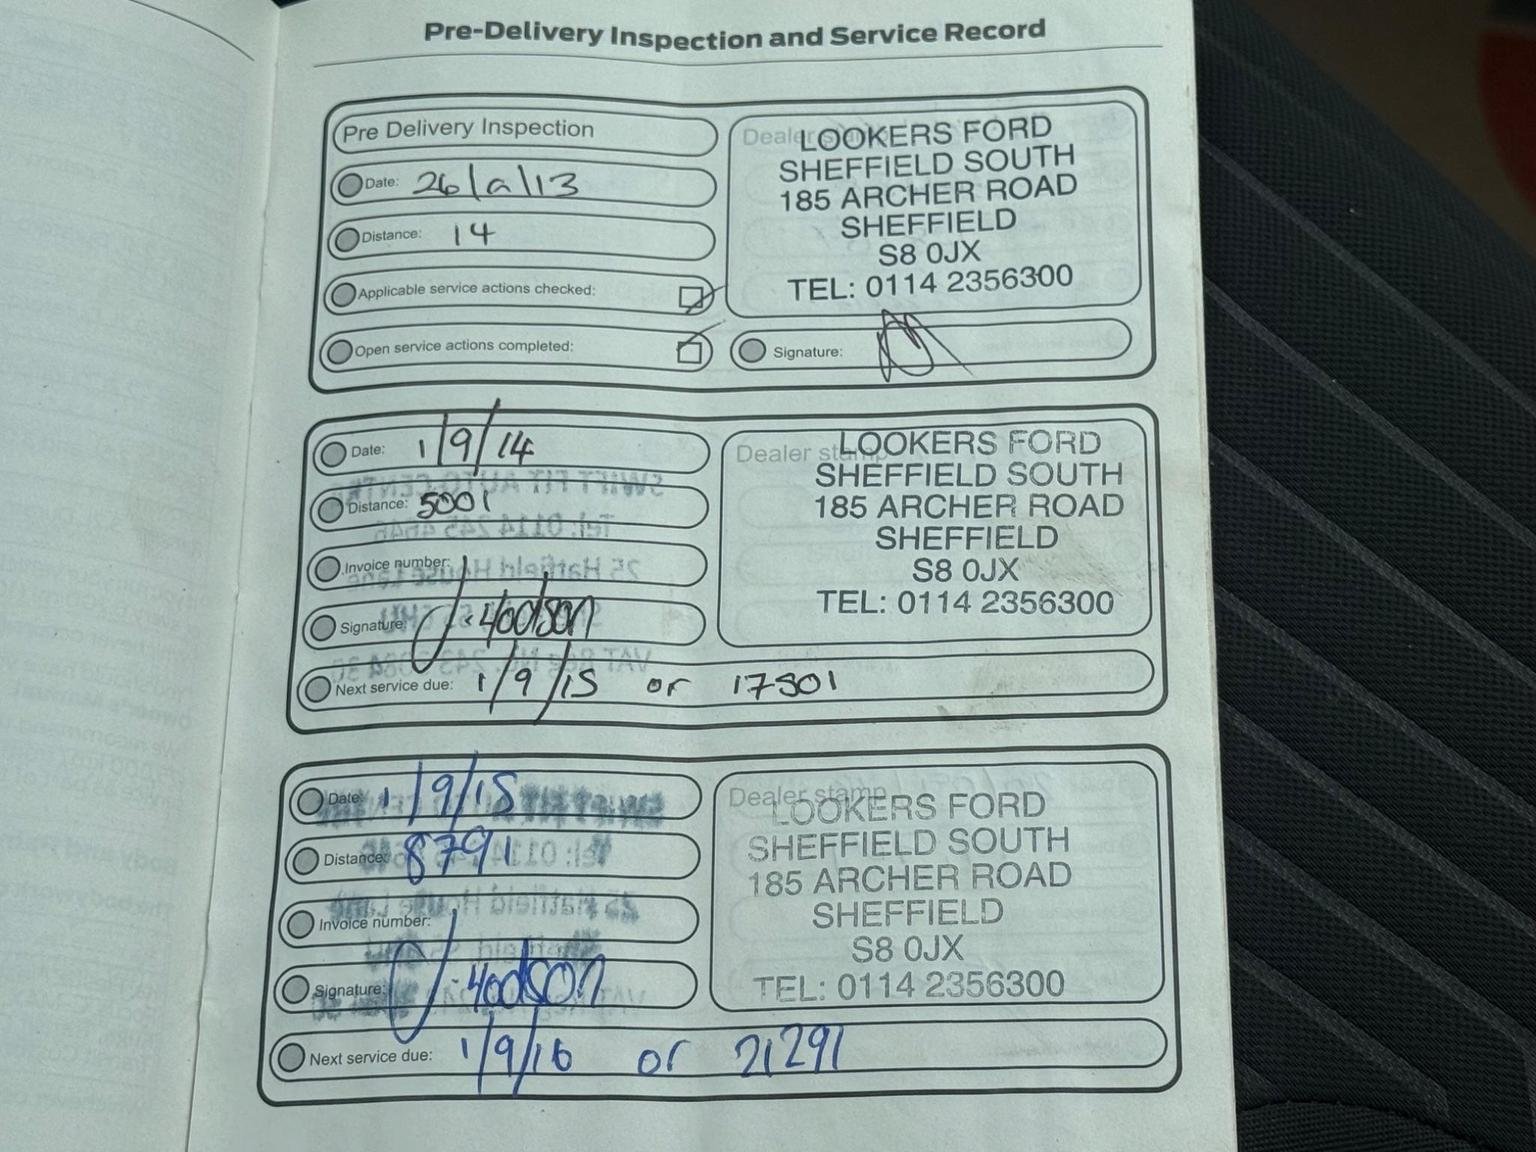 Pre-Delivery Inspection and Service Record
Pre Delivery Inspection
Date: 26/9/13
Distance: 14
Applicable service actions checked:
Open service actions completed:
Dealer stamp
LOOKERS FORD
SHEFFIELD SOUTH
185 ARCHER ROAD
SHEFFIELD
S8 0JX
TEL: 0114 2356300
Signature:
Date: 1/9/14
Distance: 5001
Invoice number:
Signature: J. Hodson
Next service due: 1/9/15 or 17501
Dealer stamp
LOOKERS FORD
SHEFFIELD SOUTH
185 ARCHER ROAD
SHEFFIELD
S8 0JX
TEL: 0114 2356300
Date: 1/9/15
Distance: 8791
Invoice number:
Signature: J. Hodson
Next service due: 1/9/16 or 21291
Dealer stamp
LOOKERS FORD
SHEFFIELD SOUTH
185 ARCHER ROAD
SHEFFIELD
S8 0JX
TEL: 0114 2356300